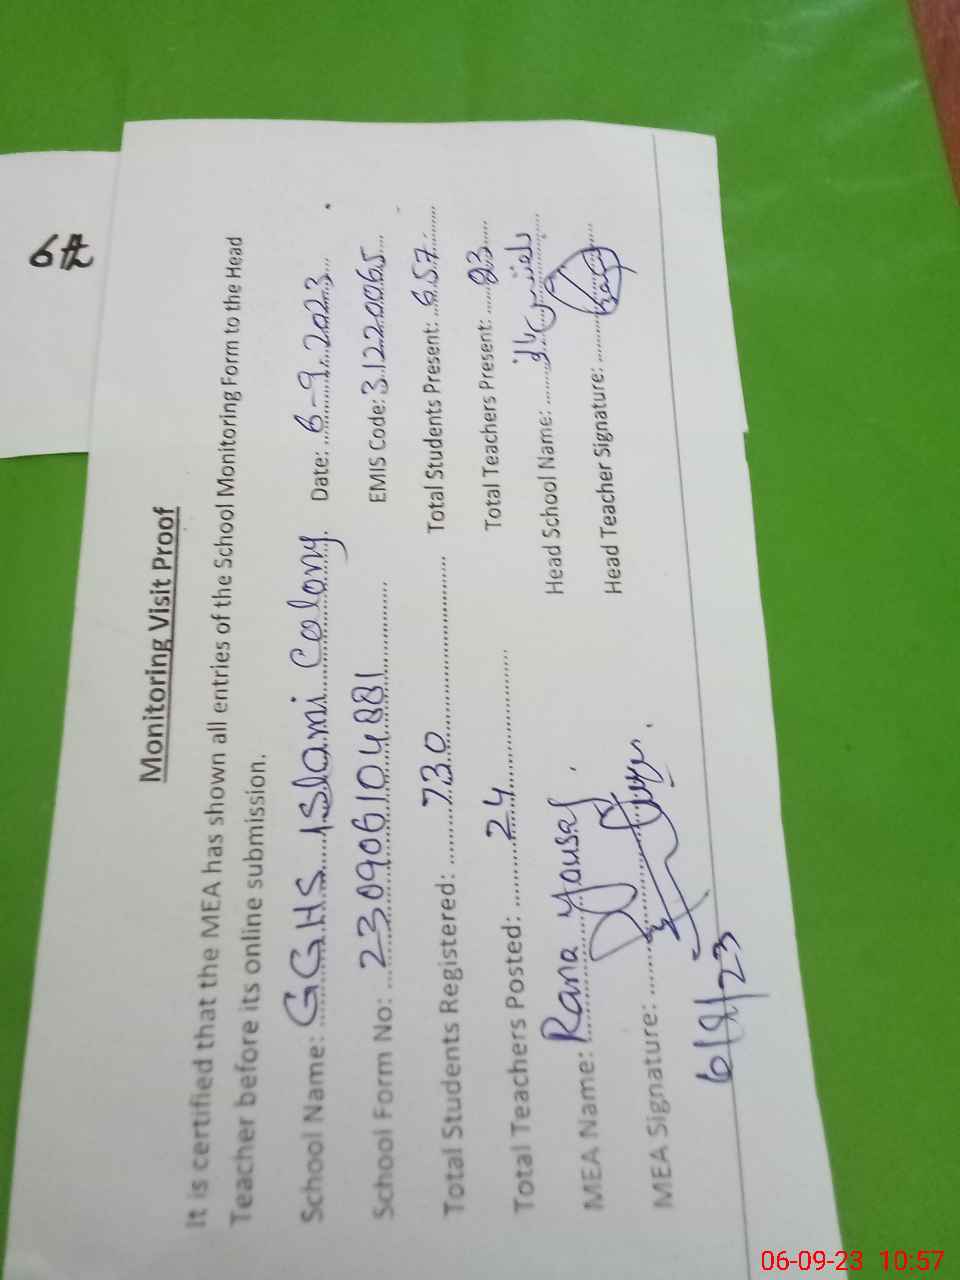 6th
Monitoring Visit Proof
It is certified that the MEA has shown all entries of the School Monitoring Form to the Head
Teacher before its online submission.
School Name: GGHS Islami Colony. Date: 6-9-2023
School Form No: 230906104881 EMIS Code: 31220065
Total Students Registered: 730 Total Students Present: 657
Total Teachers Posted: 24 Total Teachers Present: 23
MEA Name: Rana Yousaf Head School Name:
MEA Signature: Head Teacher Signature:
6/9/23
06-09-23 10:57